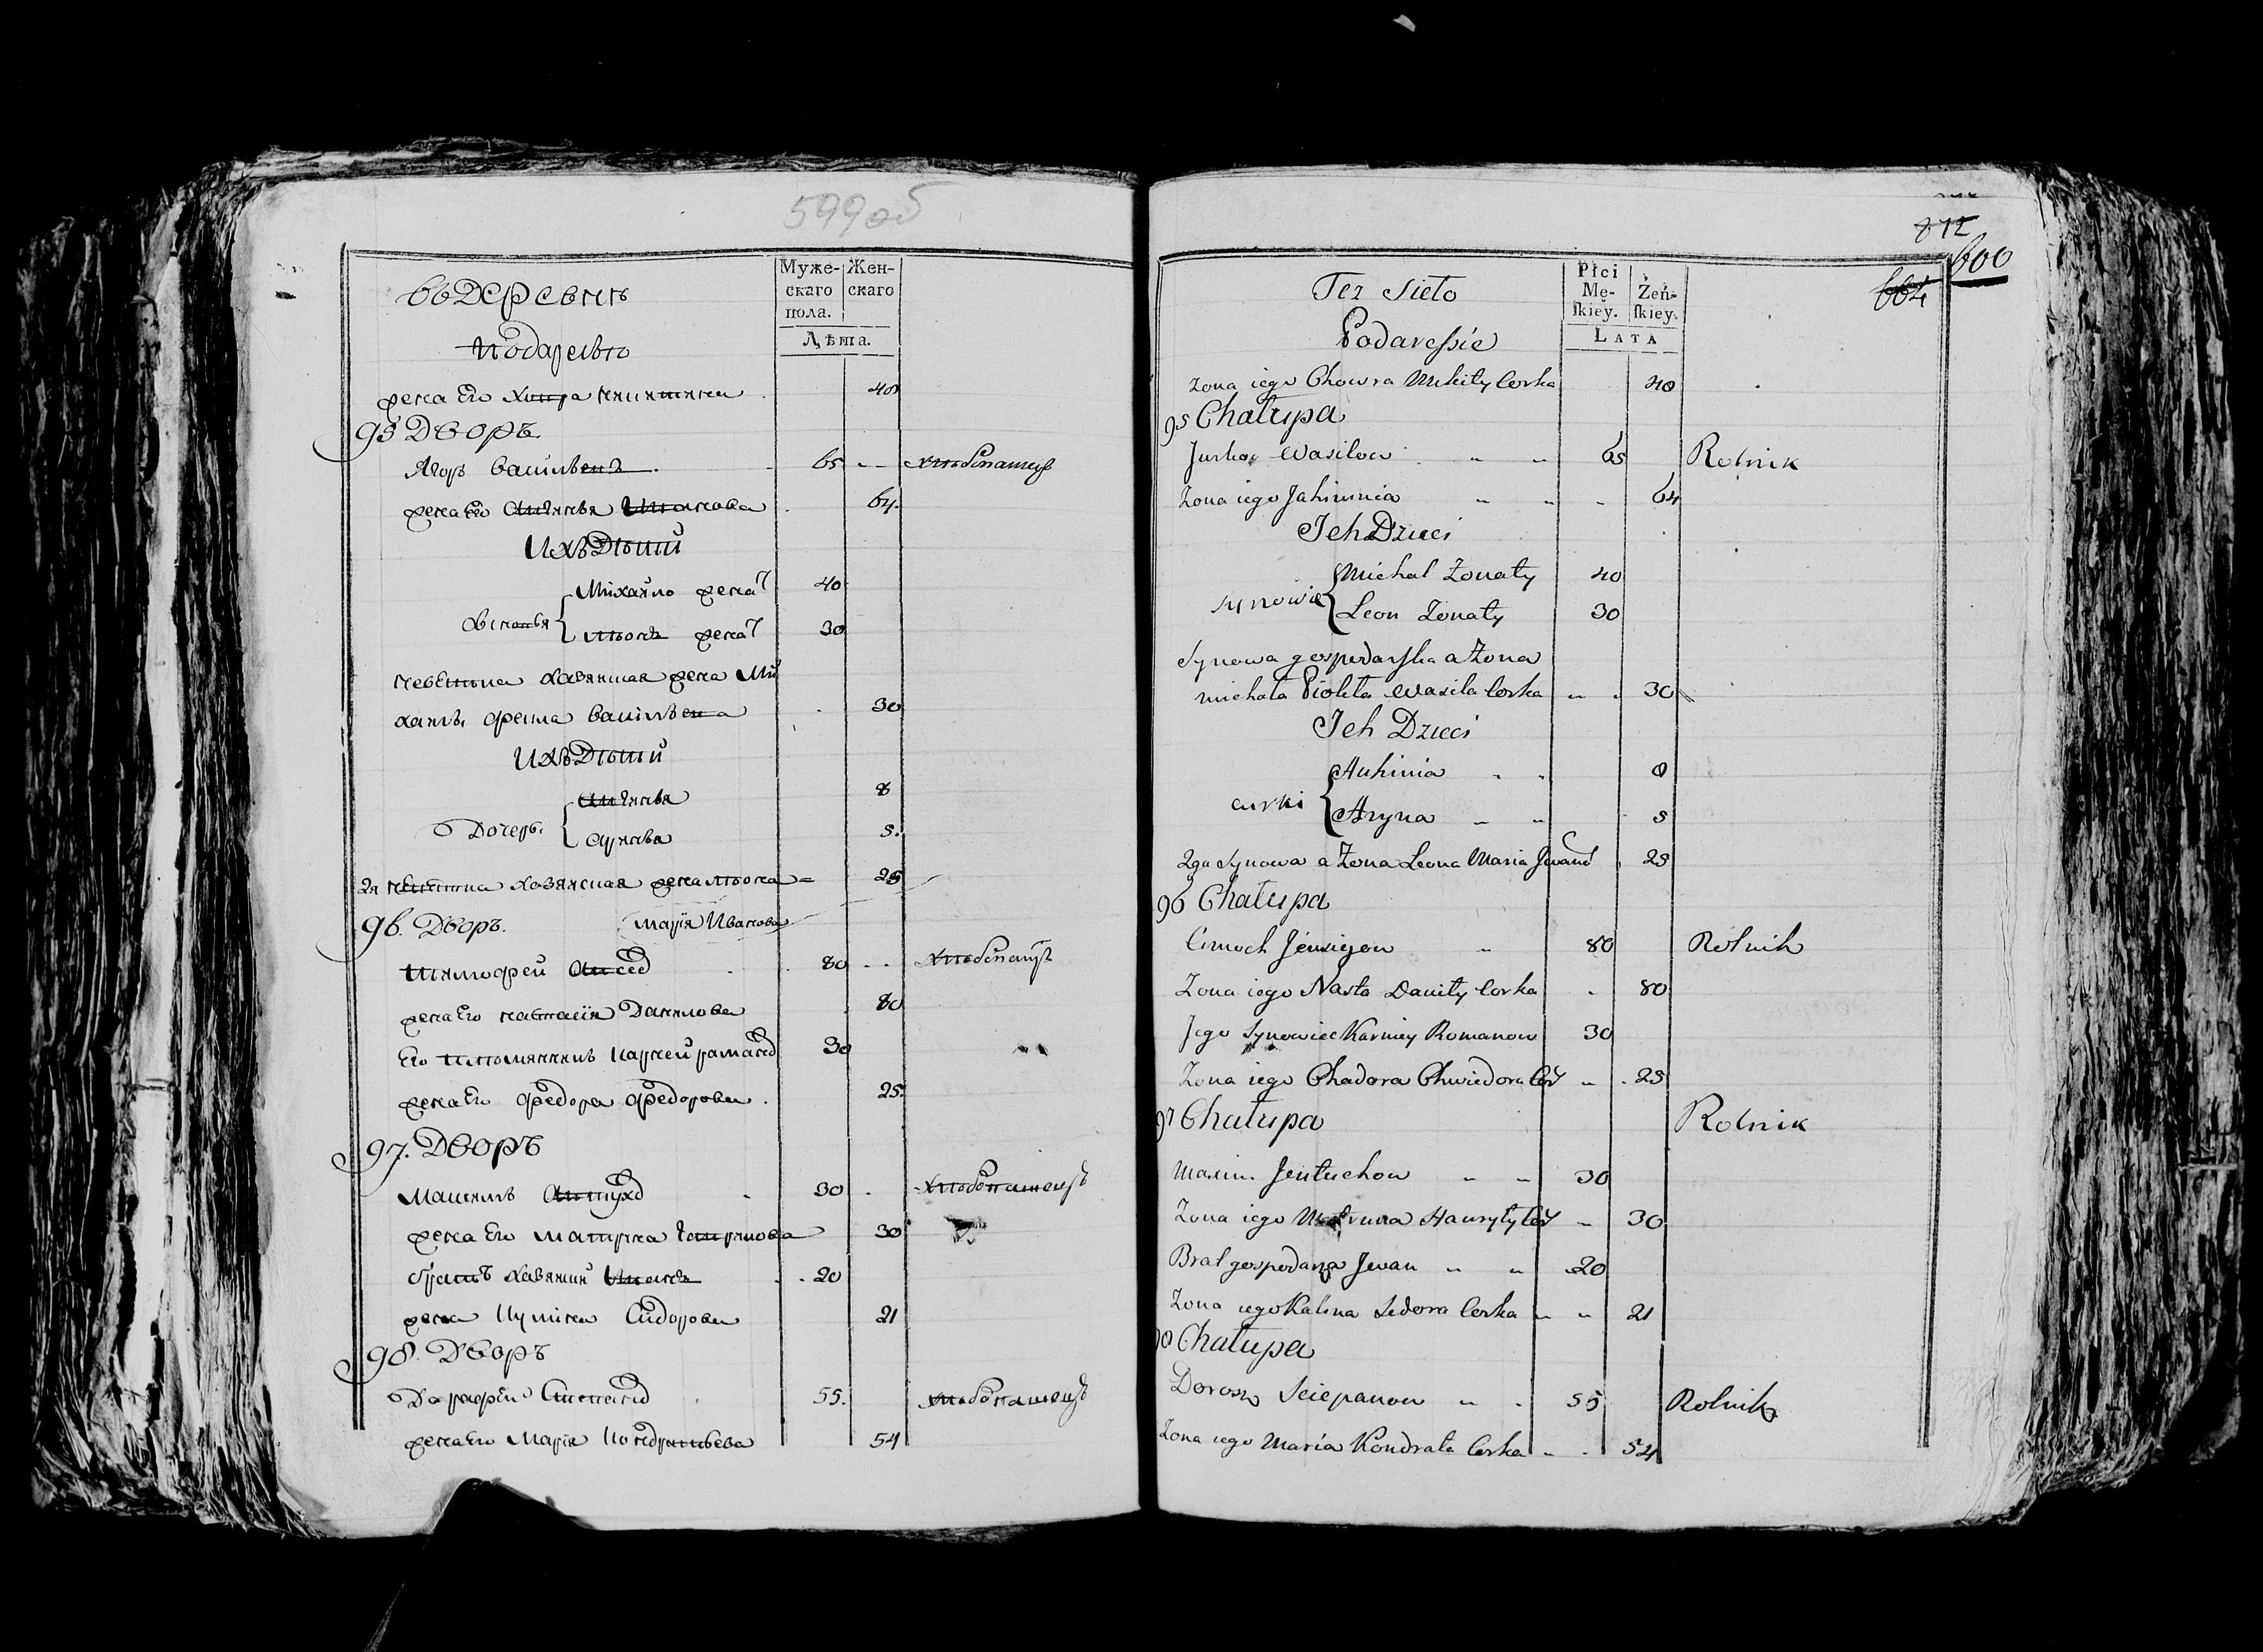 599об
въ Деревни
Подаресью
Муже-
скаго
пола.
Жен-
скаго
Лѣта.
жена Его Хима Никитина 40
95 Дворъ.
Ягоръ Васильевъ 65 хлѣбопашецъ
жена Его 64.
Ихъ Дѣтий
Михайло женат 40
Сыновья
женат 30
невѣстка хазяиская жена Ми
хаилы Василева 30
Ихъ Дѣтий
8
Дочерь.
5.
2я невѣстка хазяиская жена 25
Марїя Иванова
96. Дворъ.
Тимофей 80 хлѣбопашецъ
жена Его Настасїя Данилова 80
Его племянникъ Карней Раманов 30
жена Его Федора Федорова 25.
97. Дворъ
Максимъ 30 хлѣбопашецъ
жена Его Матрна Гаврилова 30
братъ хазяинъ Иванъ 20
жена Сидорова 21
98. Дворъ
Дарафей Степанов 55. хлѣбопашецъ
жена Его Марїя Кондратьева 54
872
600
664
Tez Sieło
Podaresſie
Płci
Mę-
ſkiey.
Żeń-
ſkiey.
LATA
Zona iego Chowra Mikity Corka 40
95 Chałupa
Jurko Wasilow 65 Rolnik
Zona iego Jahimnia 64
Ich Dzieci
Michał Zonaty 40
Synowie
Leon Zonaty 30
Synowa gospodarska a Zona
michała Wasila Corka 30
Ich Dzieci
Auhinia 8
curki
Aryna 5
2ga Synowa a Zona Leona Maria Jwano 25
96 Chałupa
Cimoch 80 Rolnik
Zona iego Nasta Daniły Corka 80
Jego Synowiec Karniey Romanow 30
Zona iego Chadora Chwiedora Cor 25
97 Chałupa Rolnik
Maxim Jentuchow 30
Zona iego Matruna Hauryły Cor 30
Brat gospodarza Jwan 20
Zona iego Kalina Sidora Corka 21
98 Chałupa
Dorosz Sciepanow 55 Rolnik
Zona iego Maria Kondrata Corka 54